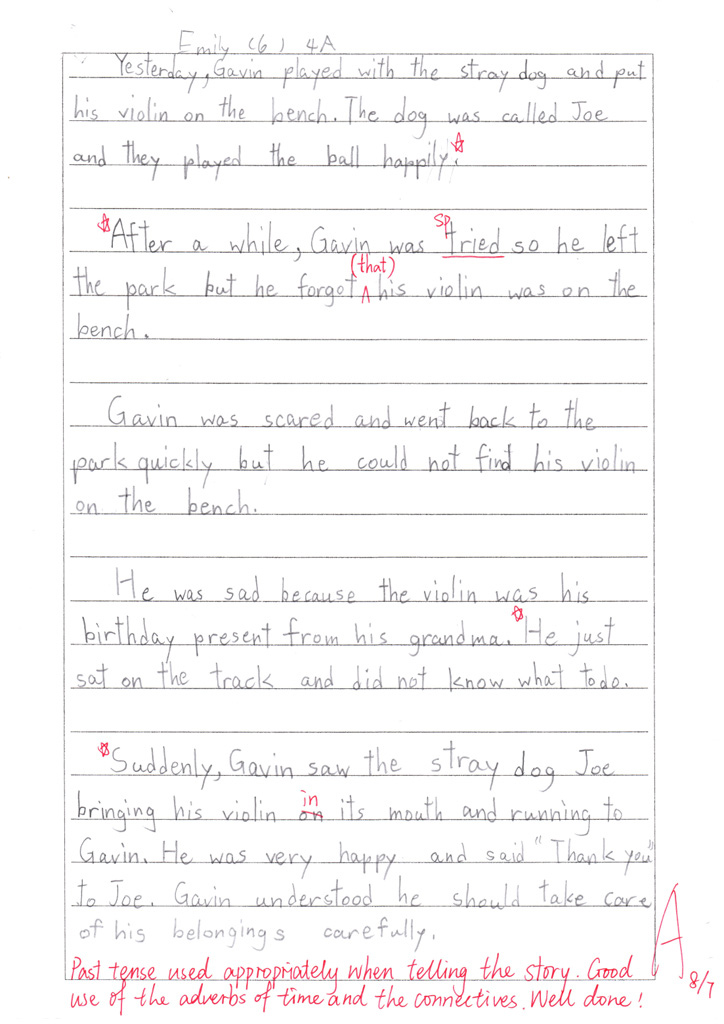 Emily (6) 4A
Yesterday, Gavin played with the stray dog and put
his violin on the bench. The dog was called Joe
and they played the ball happily.
After a while, Gavin was tried so he left
sp
(that)
the park but he forgot ^ his violin was on the
bench.
Gavin was scared and went back to the
park quickly but he could not find his violin
on the bench.
He was sad because the violin was his
birthday present from his grandma. He just
sat on the track and did not know what to do.
Suddenly, Gavin saw the stray dog Joe
in
bringing his violin on its mouth and running to
Gavin. He was very happy and said "Thank you"
to Joe. Gavin understood he should take care
of his belongings carefully.
A
8/7
Past tense used appropriately when telling the story. Good
use of the adverbs of time and the connectives. Well done!